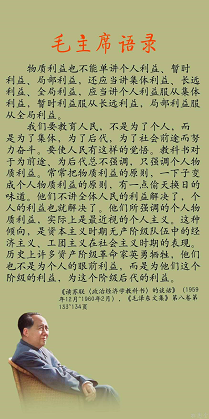 毛主席语录
物质利益也不能单讲个人利益、暂时
利益、局部利益，还应当讲集体利益、长远
利益、全局利益，应当讲个人利益服从集体
利益，暂时利益服从长远利益，局部利益服
从全局利益。
我们要教育人民，不是为了个人，而
是为了集体，为了后代，为了社会前途而努
力奋斗。要使人民有这样的觉悟。教科书对
于为前途、为后代总不强调，只强调个人物
质利益。常常把物质利益的原则，一下子变
成个人物质利益的原则，有一点偷天换日的
味道。他们不讲全体人民的利益解决了，个
人的利益也就解决了。他们所强调的个人物
质利益，实际上是最近视的个人主义。这种
倾向，是资本主义时期无产阶级队伍中的经
济主义、工团主义在社会主义时期的表现。
历史上许多资产阶级革命家英勇牺牲，他们
也不是为个人的眼前利益，而是为他们这个
阶级的利益，为这个阶级后代的利益。
《读苏联〈政治经济学教科书〉的谈话》（1959
年12月~1960年2月），《毛泽东文集》第八卷第
133~134页